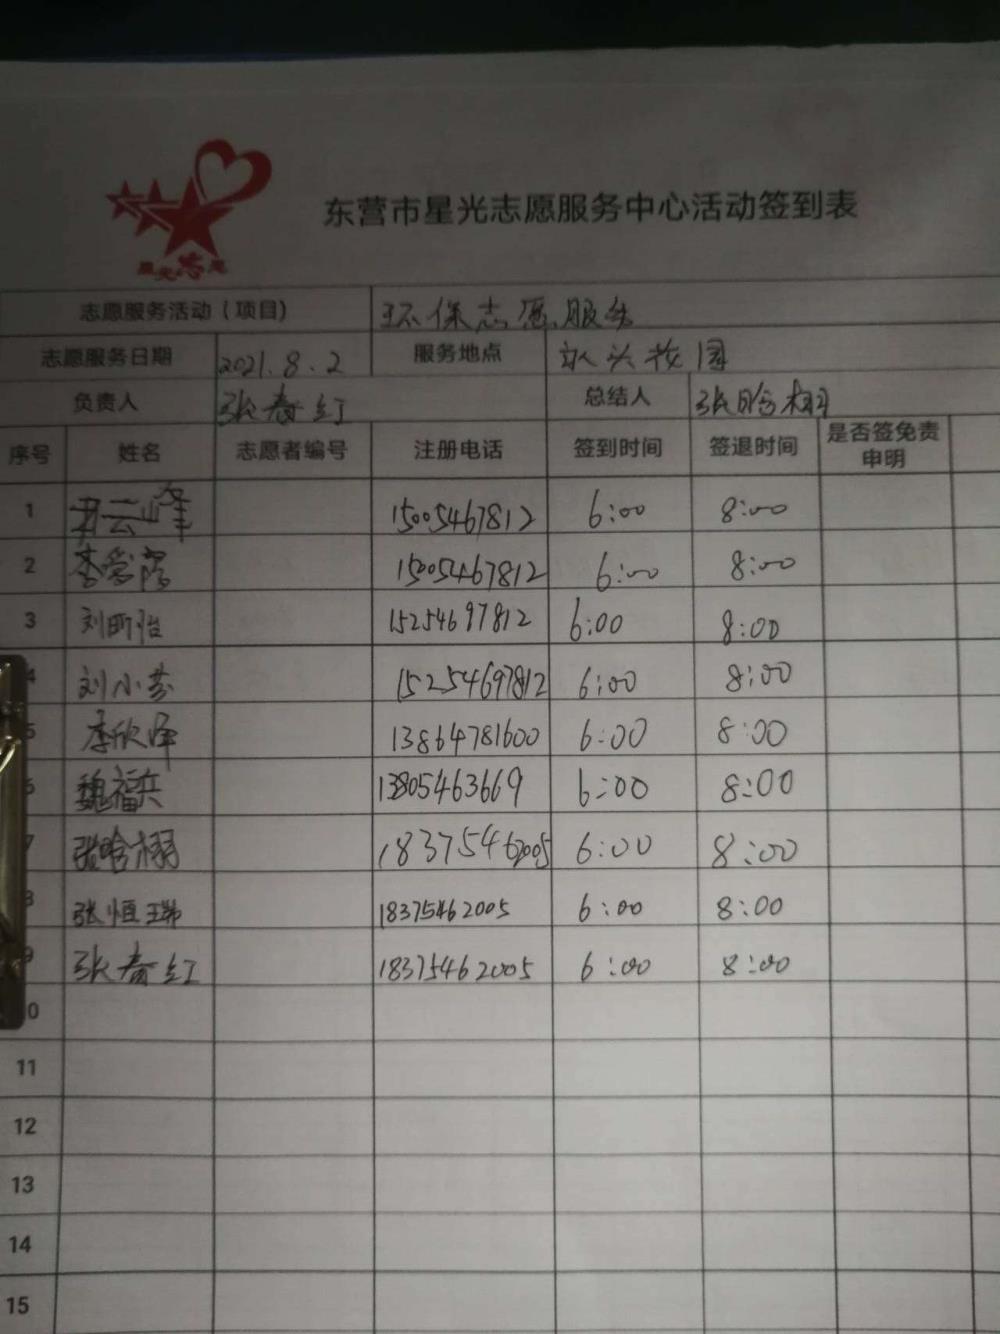 星光志愿
东营市星光志愿服务中心活动签到表
志愿服务活动（项目） 环保志愿服务
志愿服务日期 2021.8.2 服务地点
负责人 张春红 总结人 张晗栩
序号 姓名 志愿者编号 注册电话 签到时间 签退时间 是否签免责申明
1 尹云峰 15005467812 6:00 8:00
2 15005467812 6:00 8:00
3 刘昕怡 15254697812 6:00 8:00
4 刘小芬 15254697812 6:00 8:00
5 李欣泽 13864781600 6:00 8:00
6 魏福兵 13805463669 6:00 8:00
7 张晗栩 18375462005 6:00 8:00
8 张恒瑞 18375462005 6:00 8:00
9 张春红 18375462005 6:00 8:00
10
11
12
13
14
15